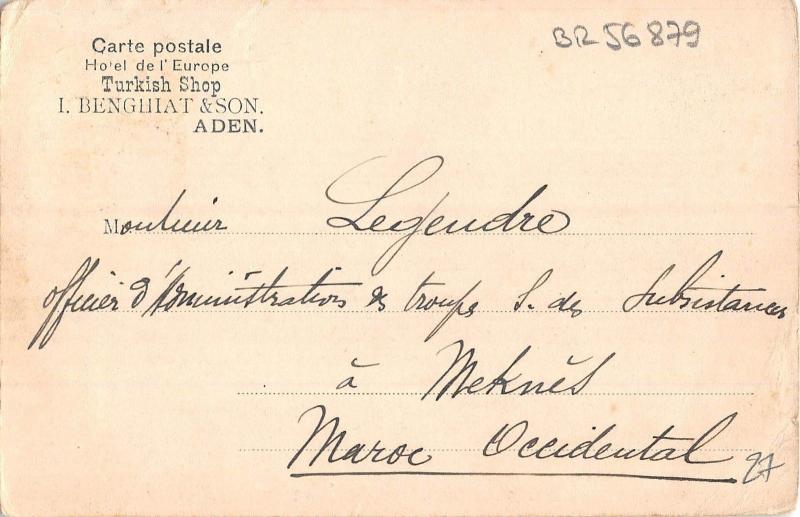 BR 56879
Carte postale
Hotel de l'Europe
Turkish Shop
I. BENGHIAT & SON.
ADEN.
Monsieur Legendre
officier d'Administration des troupes S. des Subsistances
à Meknès
Maroc Occidental
27